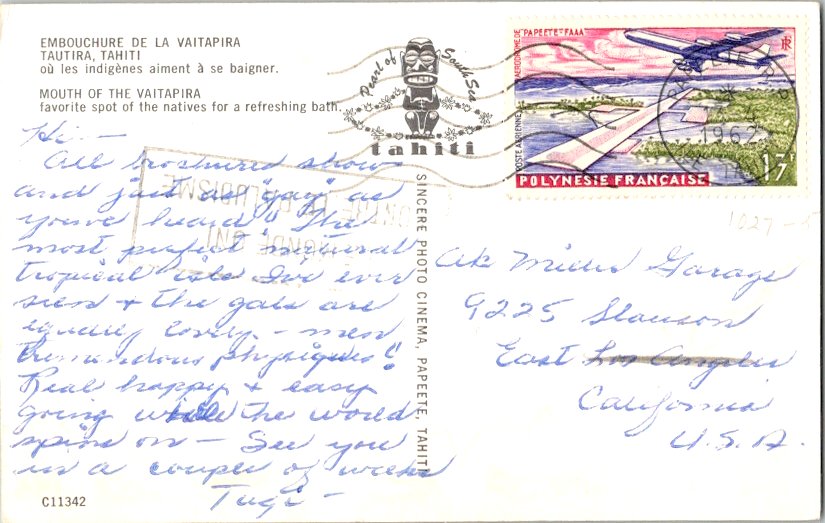 EMBOUCHURE DE LA VAITAPIRA
TAUTIRA, TAHITI
où les indigènes aiment à se baigner.
MOUTH OF THE VAITAPIRA
favorite spot of the natives for a refreshing bath.
Pearl of South Sea
tahiti
AÉRODROME DE PAPEETE-FAAA
RF
POSTE AÉRIENNE
13F
POLYNESIE FRANÇAISE
1962
Hi -
All brochures show
and just as "gay" as
you've heard! The
most perfect natural
tropical isle I've ever
seen + the gals are
equally lovely - men
tremendous physiques!
Real happy + easy
going while the world
spins on - See you
in a couple of weeks
C11342
SINCERE PHOTO CINEMA, PAPEETE, TAHITI
LE MONDE UNI
CONTRE LE PALUDISME
1027-5
Garage
9225 Slauson
East Los Angeles
California
U.S.A.